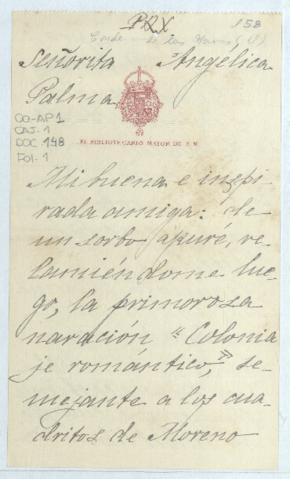 PRX
158
Conde de las Navas, (?)
Señorita Angélica
Palma.
CO-AP1
CAJ. 1
DOC 148
FOl. 1
EL BIBLIOTECARIO MAYOR DE S. M.
Mi buena e inspi
rada amiga: de
un sorbo apuré, re-
lamiéndome lue-
go, la primorosa
naración "Colonia
je romántico," se-
mejante a los cua-
dritos de Moreno